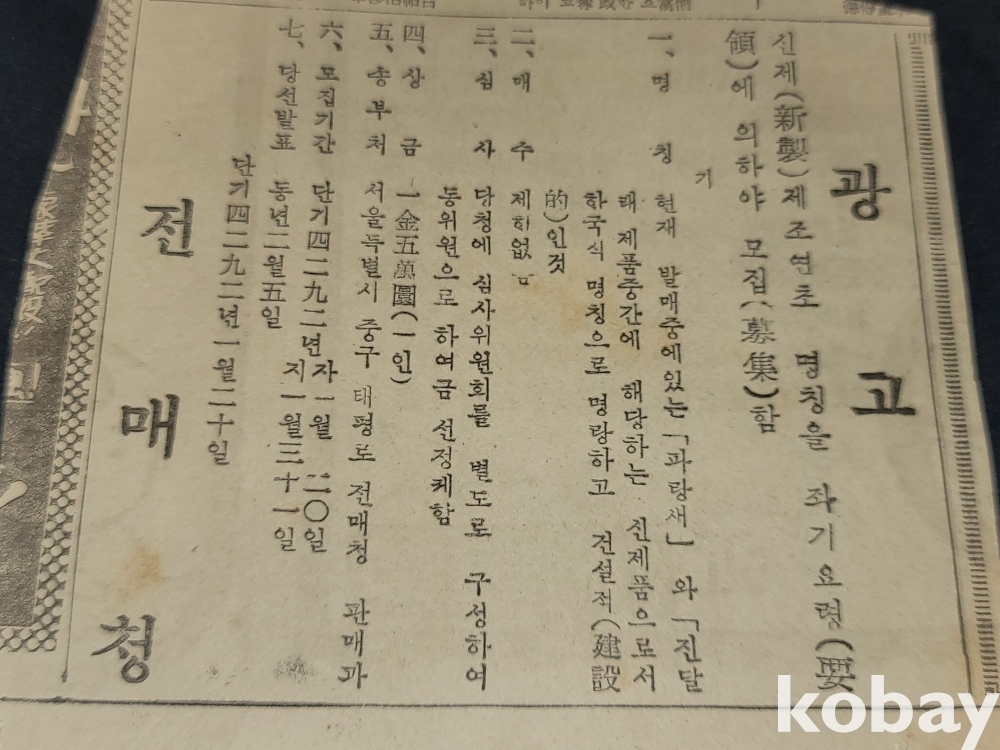 광고
신제(新製)제조연초 명칭을 좌기요령(要
領)에 의하야 모집(募集)함
기
一、명 칭 현재 발매중에있는「파랑새」와「진달
래 제품중간에 해당하는 신제품으로서
하국식 명칭으로 명랑하고 건설적(建設
的)인것
二、매 수 제한없음
三、심 사 당청에 심사위원회를 별도로 구성하여
동위원으로 하여금 선정케함
四、상 금 一金五萬圜(一인)
五、송부처 서울특별시 중구 태평로 전매청 판매과
六、모집기간 단기四二九二년자 一월 二〇일
지 一월三十一일
七、당선발표 동년二월五일
단기四二九二년一월二十일
전매청
kobay